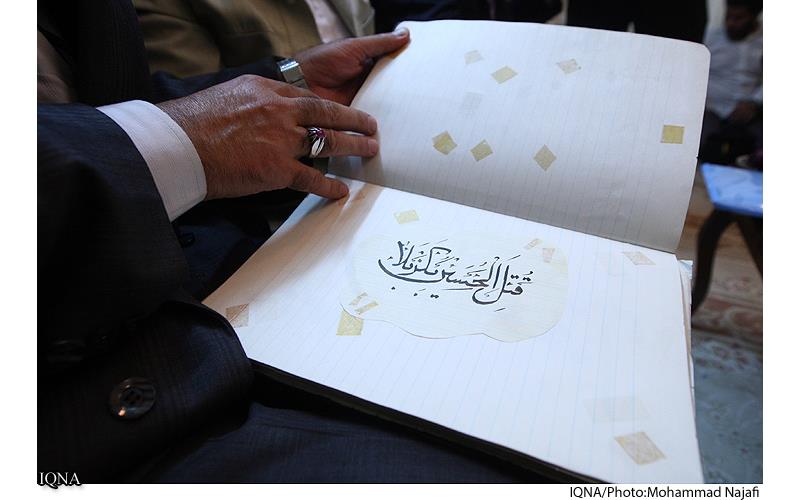 قُتِلَ الْحُسَيْن بِكَرْبَلَا
IQNA
IQNA/Photo:Mohammad Najafi